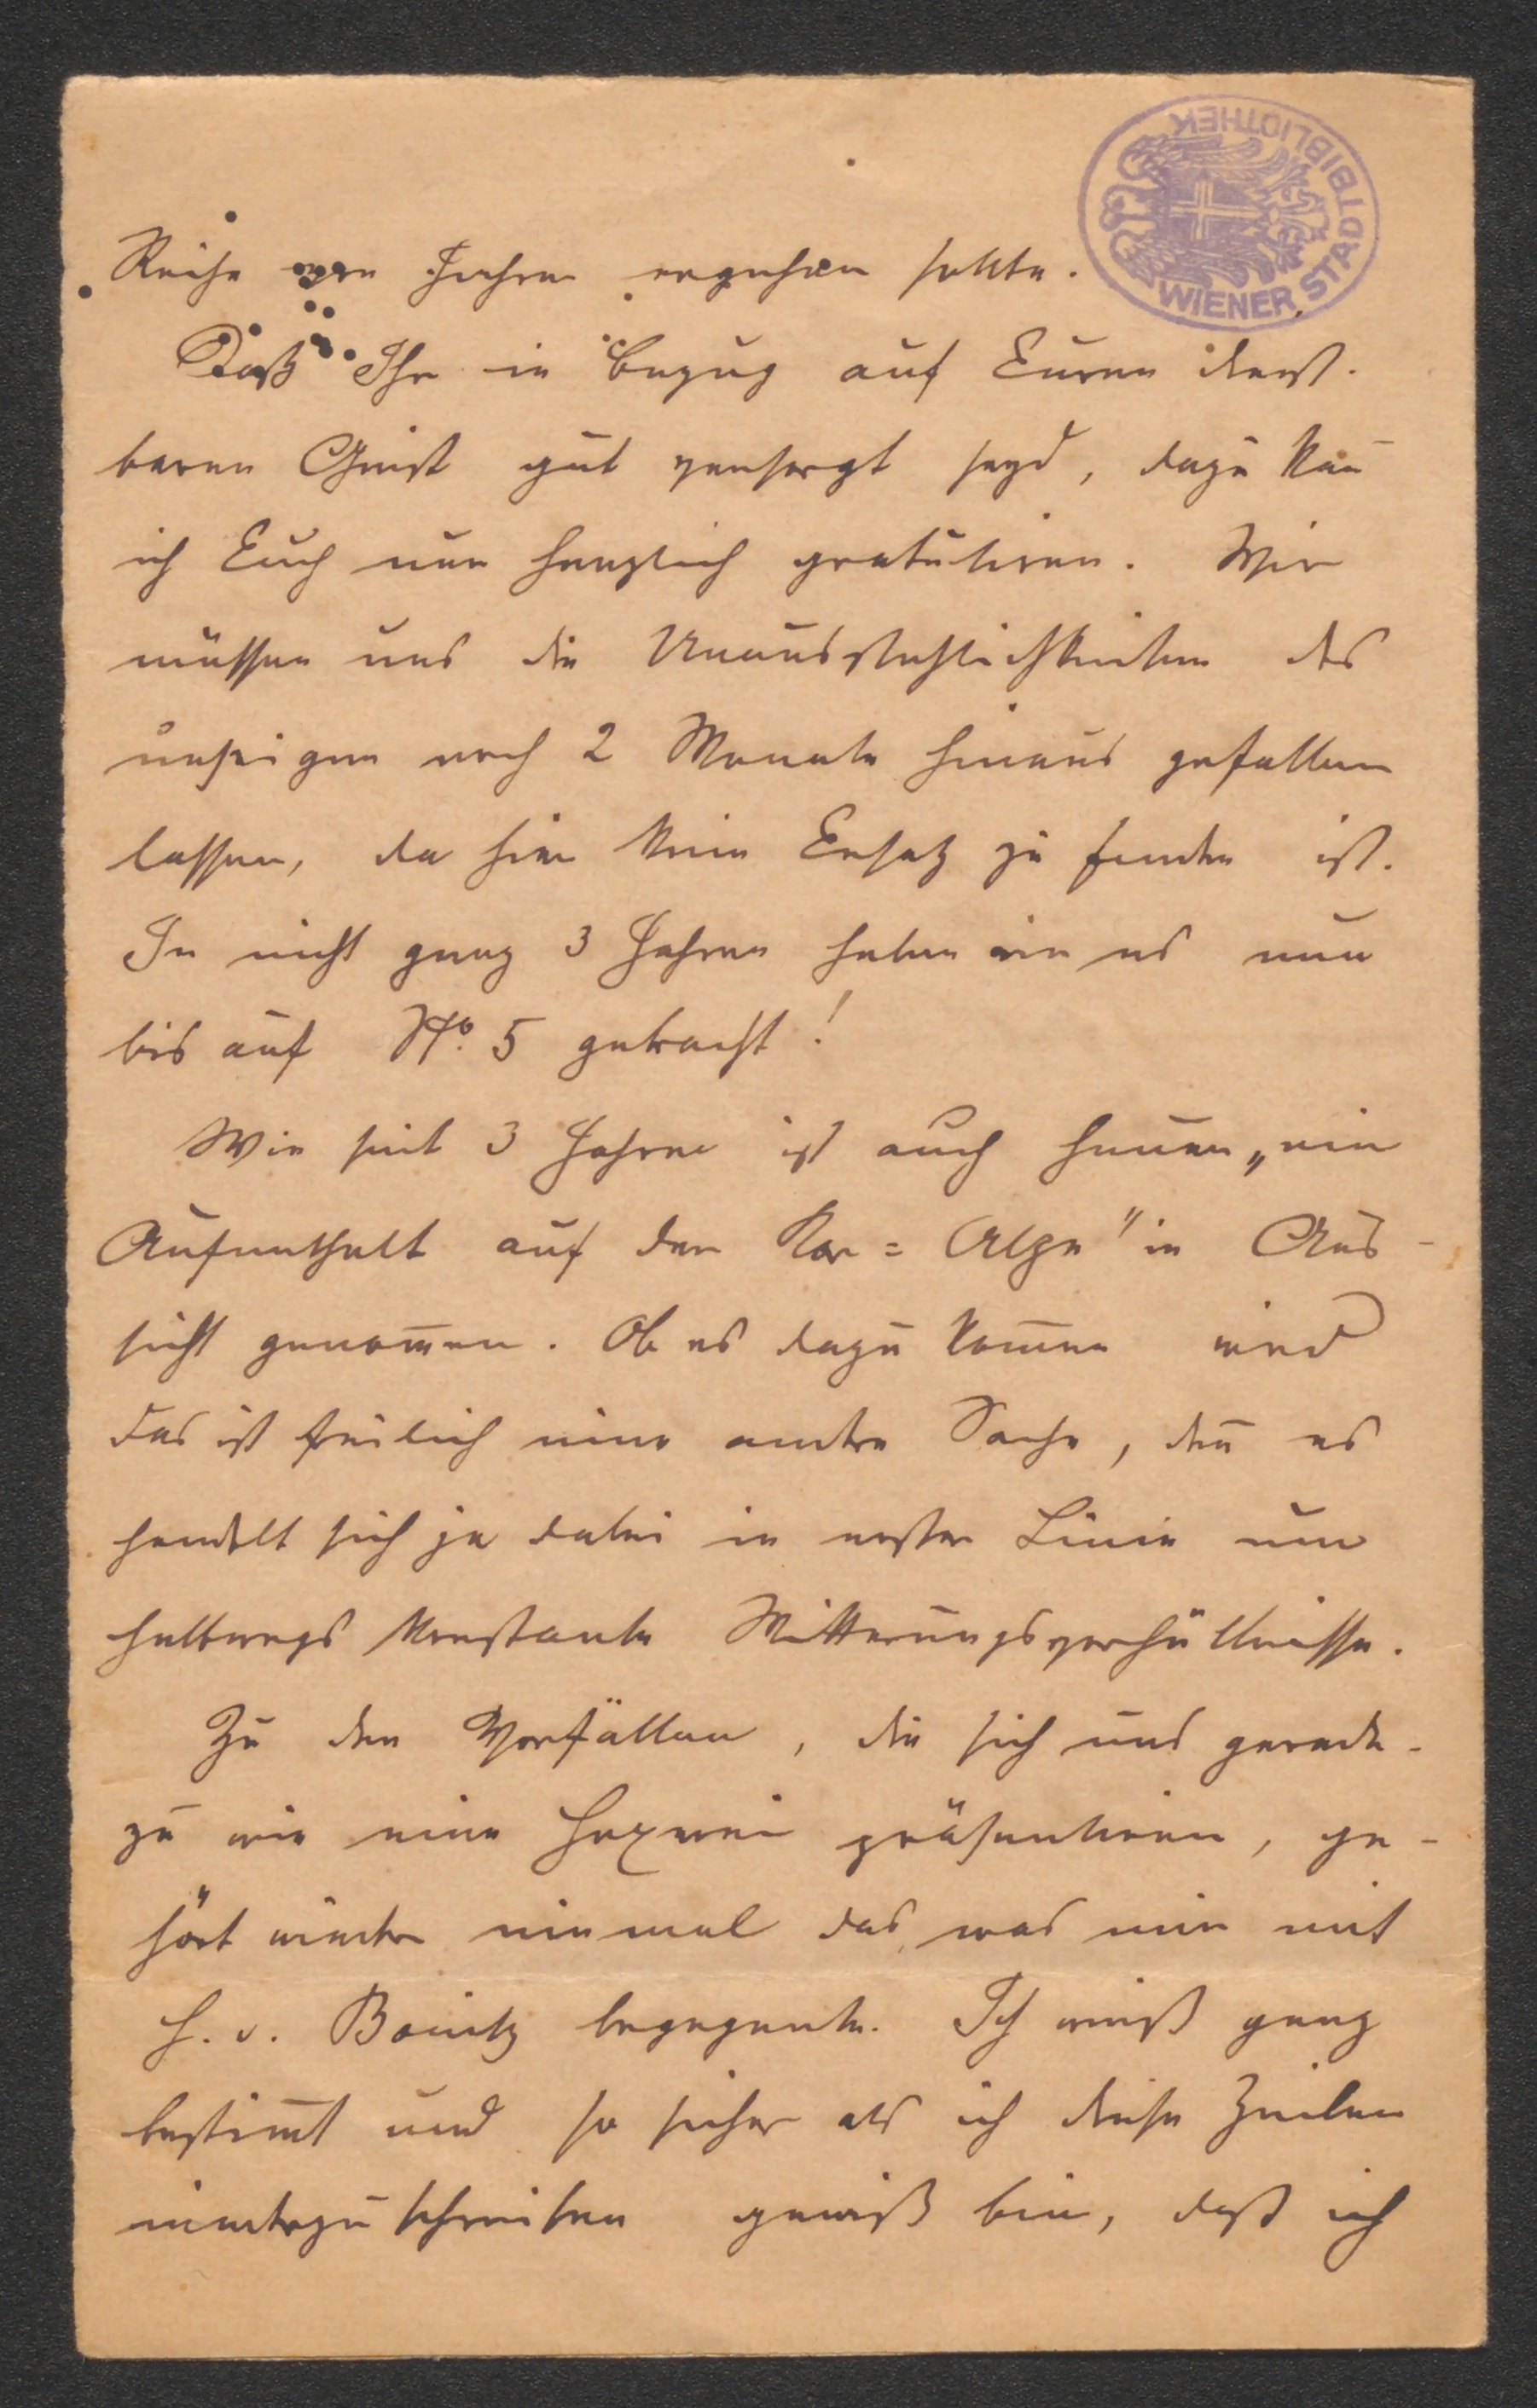 WIENER STADTBIBLIOTHEK
Reihe von Jahren ergehen sollte.
Daß Ihr in Bezug auf Euren dienst-
baren Geist gut versorgt seyd, dazu kan̄
ich Euch nur herzlich gratuliren. Wir
müssen uns die Unausstehlichkeiten des
unsrigen noch 2 Monate hinaus gefallen
lassen, da hier kein Ersatz zu finden ist.
In nicht ganz 3 Jahren haben wir es nun
bis auf No. 5 gebracht!
Wie seit 3 Jahren ist auch heuer „ein
Aufenthalt auf der Kor=Alpe" in Aus-
sicht genom̄en. Ob es dazu kom̄en wird
das ist freilich eine andre Sache, den̄ es
handelt sich ja dabei in erster Linie um
halbwegs konstante Witterungsverhältnisse.
Zu den Vorfällen, die sich uns gerade-
zu wie eine Hexerei präsentiren, ge-
hört wieder einmal das, was mir mit
H. v. Bonitz begegnete. Ich weiß ganz
bestim̄t und so sicher als ich diese Zeilen
niederzuschreiben gewiß bin, daß ich